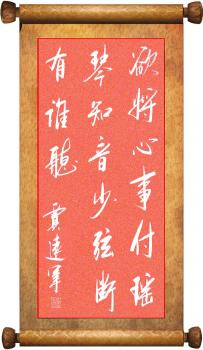 欲将心事付瑶
琴知音少弦断
有谁听
贾连军